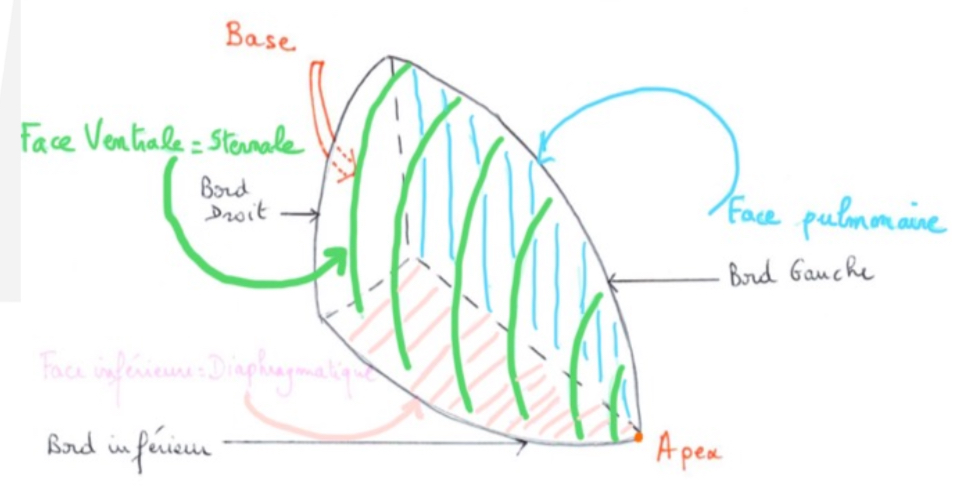 Base
Face Ventrale = Sternale
Bord
Droit
Face pulmonaire
Bord Gauche
Face inférieure = Diaphragmatique
Bord inférieur
Apex